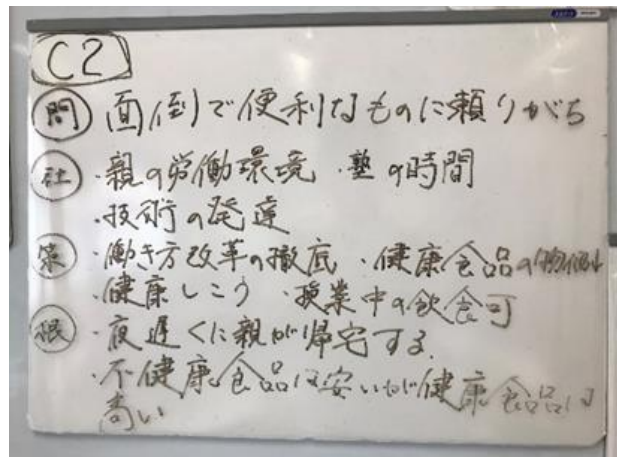 C2
問 面倒で便利なものに頼りがち
社 ・親の労働環境 ・塾の時間
・技術の発達
策 ・働き方改革の徹底 ・健康食品の物価↓
・健康しこう ・授業中の飲食可
根 ・夜遅くに親が帰宅する。
・不健康食品は安いが健康食品は
高い